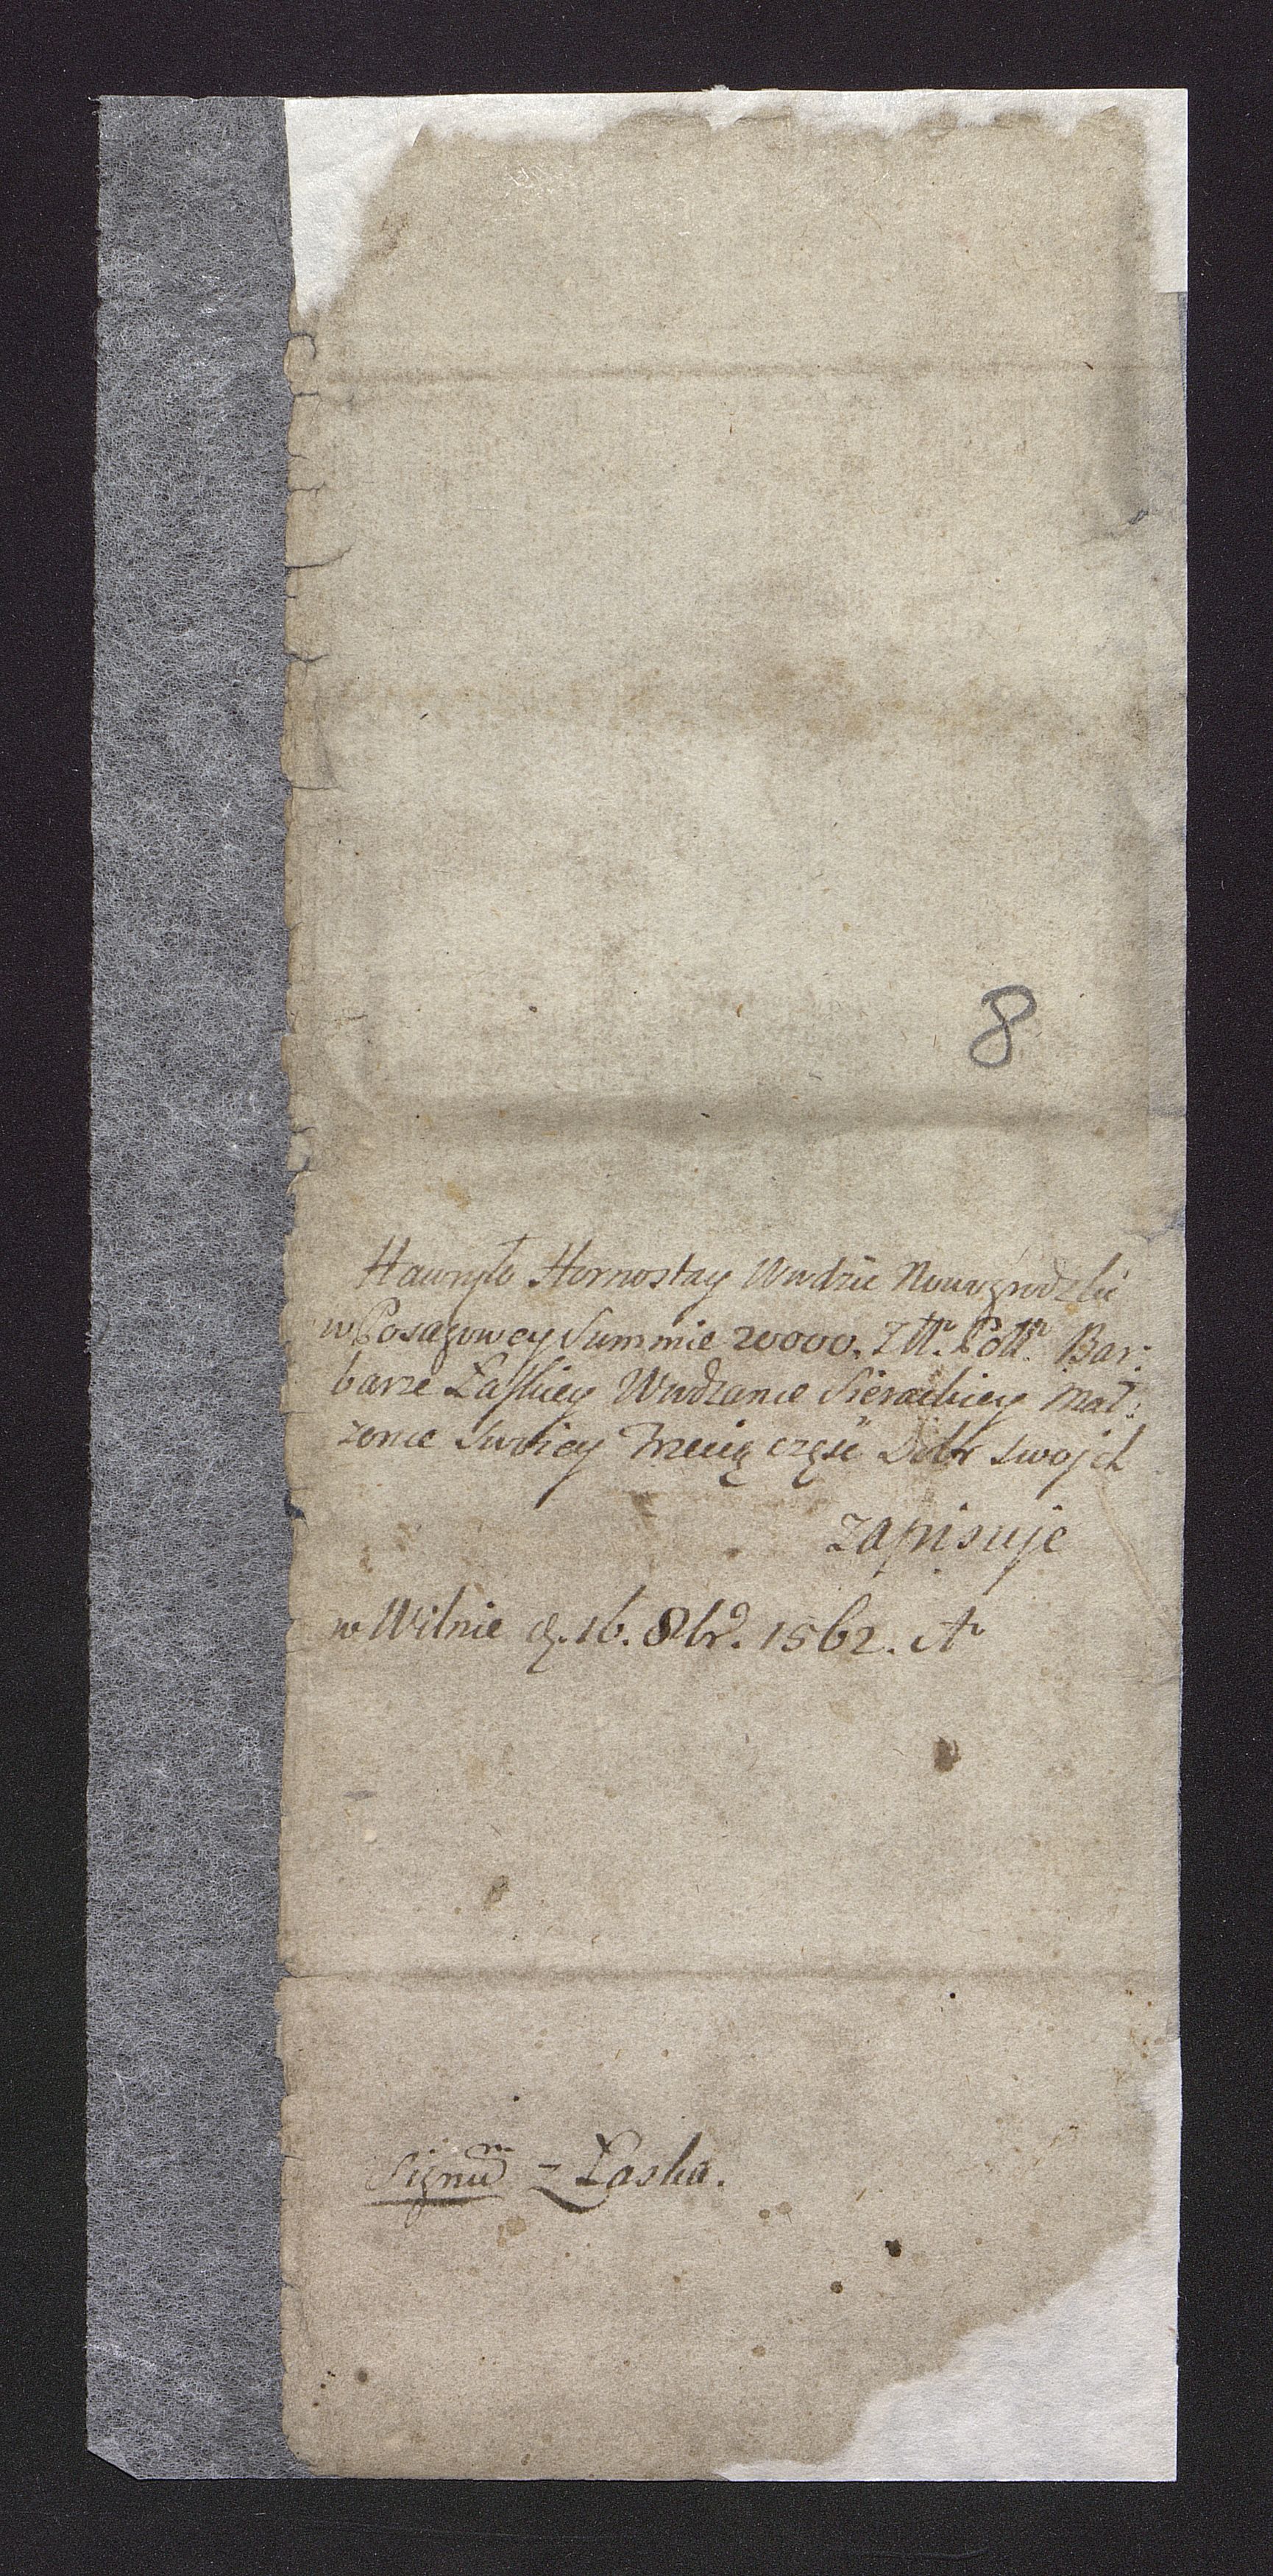 8
Hawryło Hornostay Wwdzic Nowogrodzki
w Posagowey Summie 20000. Złł. Poll. Bar:
barze Łaskiey Wwdzance Sieradkiey Mał:
zonce Swoiey Trzecią część Dobr swojch
zapisuje
w Wilnie d. 16. 8br. 1562.
Signum z Łaska.